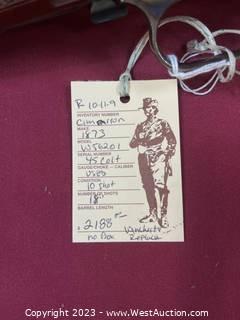 R 10-11-9
INVENTORY NUMBER
Cimarron
MAKE
1873
MODEL
W56201
SERIAL NUMBER
45 Colt
GAUGE/CHOKE - CALIBER
USED
CONDITION
10 shot
NUMBER OF SHOTS
18"
BARREL LENGTH
$ 2188
no Box
Winchester
Replica
Copyright 2023 - www.WestAuction.com